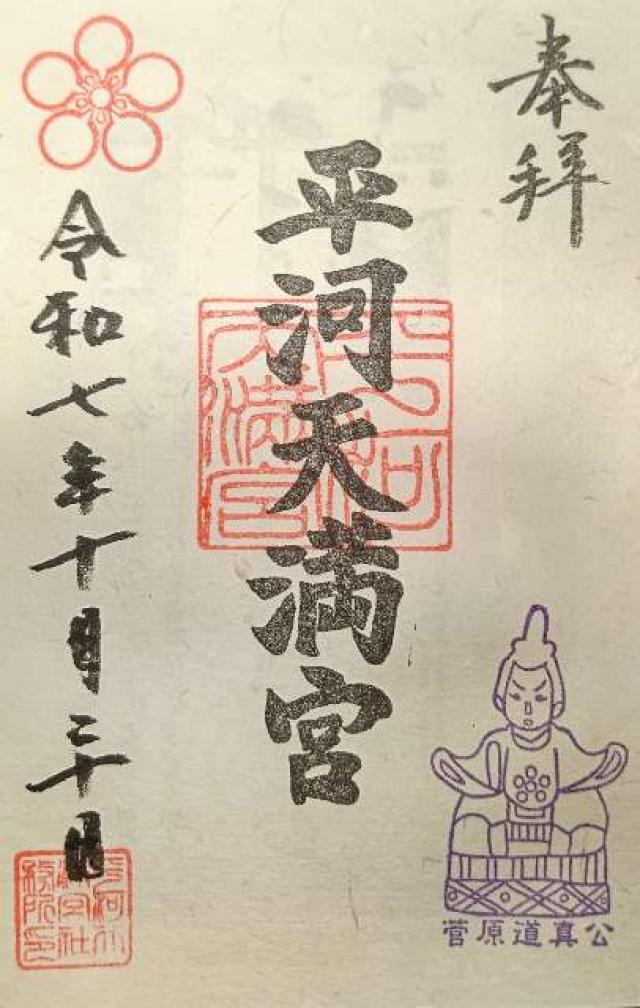 奉拝
平河天満宮
平河
天満宮
令和七年十月二十日
平河天
満宮社
務所印
菅原道真公